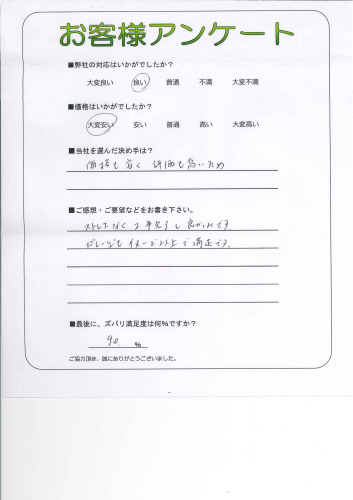 お客様アンケート
■弊社の対応はいかがでしたか?
大変良い 良い 普通 不満 大変不満
■価格はいかがでしたか?
大変安い 安い 普通 高い 大変高い
■当社を選んだ決め手は?
価格も安く 評価も高いため
■ご感想・ご要望などをお書き下さい。
ストレスなく工事完了し良かったです
ガレージもイメージ以上で満足です。
■最後に、ズバリ満足度は何%ですか?
90 %
ご協力頂き、誠にありがとうございました。